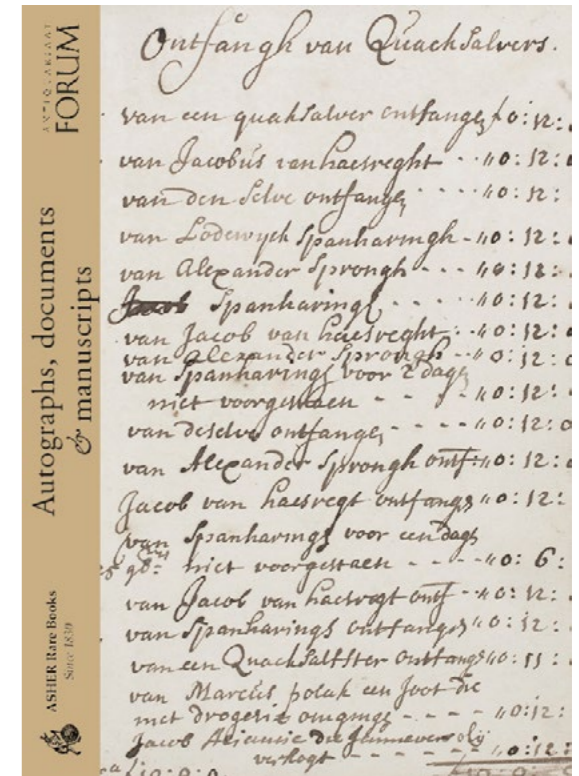 ANTIQUARIAAT
FORUM
Autographs, documents
& manuscripts
ASHER Rare Books
Since 1830
Ontfangh van Quacksalvers.
van een quaksalver ontfange f0:12:
van Jacobus van haesreght - - "0:12:0
van den selve ontfange - - - - "0:12:
van Lodewych Spanharingh - "0:12:
van Alexander Sprongh - - - "0:12:
Jacob Spanharings - - - - - "0:12:
van Jacob van haesreght - - "0:12:0
van Alexander Sprongh - - "0:12:0
van Spanharings voor 2 dage
niet voorgestaen - - - - "0:12:
van deselve ontfange - - - - "0:12:0
van Alexander Sprongh ontf: "0:12:
Jacob van haesregt ontfange "0:12:
van Spanharings voor een dage
niet voorgestaen - - - - "0:6:
van Jacob van haesregt ontf - "0:12:
van Spanharings ontfange "0:12:
van een Quacksalfster ontfange "0:11:
van Marcus polak een Joot die
met drogerie omginge - - - - "0:12:
Jacob die Jannever olij
verkogt - - - - "0:12: